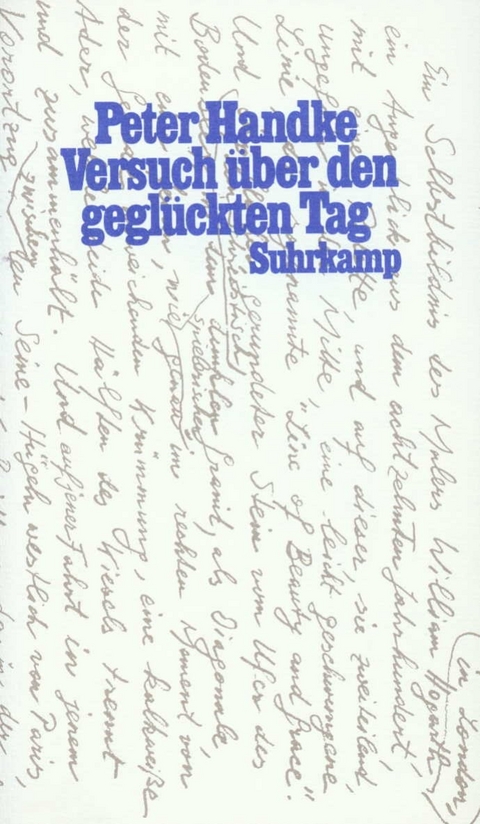 Peter Handke
Versuch über den
geglückten Tag
Suhrkamp
Ein Selbstbildnis des Malers William Hogarth, in London,
ein Augenblick aus dem achtzehnten Jahrhundert,
mit einer Palette, und auf dieser, sie zweiteilend,
ungefähr in der Mitte, eine leicht geschwungene
Linie, die sogenannte „Line of Beauty and Grace“.
Und gerundeter Stein vom Ufer des
Bodensees dunklen Granit, als Diagonale
mit im rechten Moment von
der abweichenden Krümmung, eine kalkweiße
Ader, beide Hälften des Kiesels trennt
und zusammenhält. Und auf jener Fahrt in jenem
Vorortzug zwischen den Seine-Hügeln westlich von Paris,